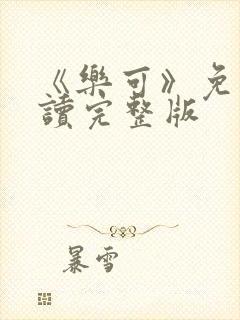 《樂可》免
讀完整版
暴雪